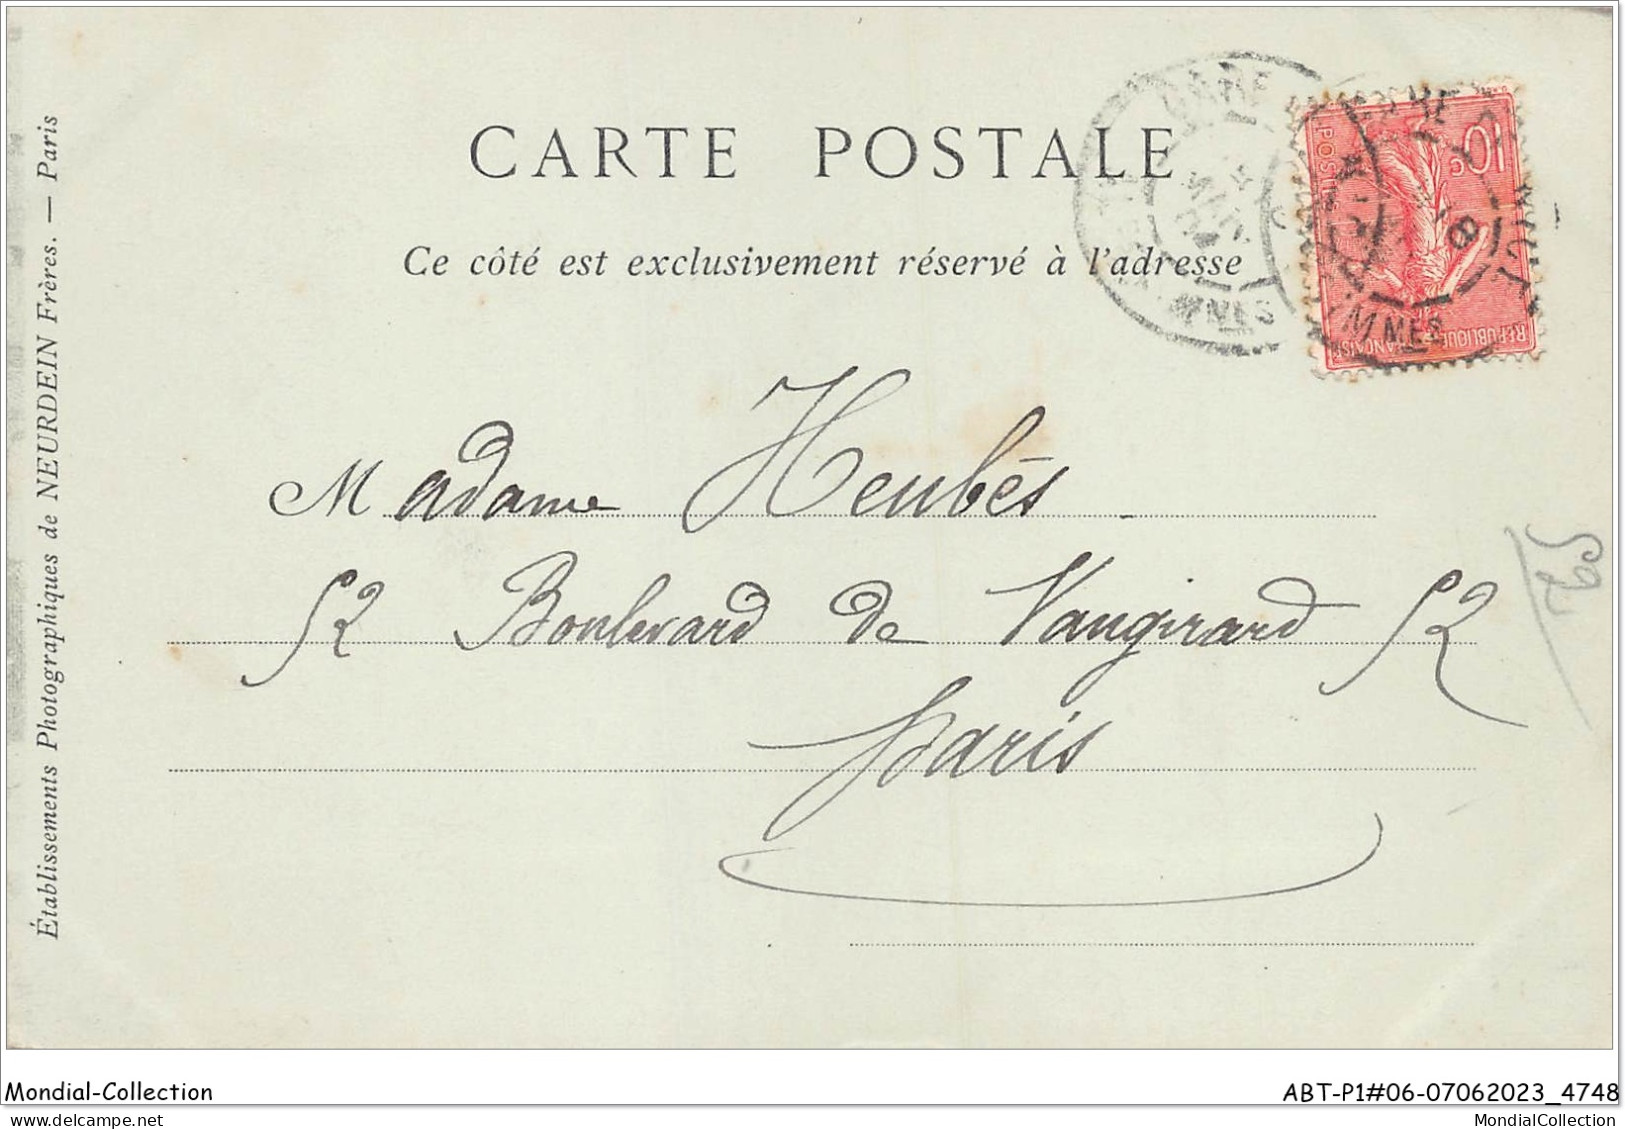 CARTE POSTALE
Ce côté est exclusivement réservé à l'adresse
Madame Heubés
52 Boulevard de Vaugirard 52
Paris
Établissements Photographiques de NEURDEIN Frères. — Paris
GARE
10c
POSTES
RÉPUBLIQUE FRANÇAISE
52
Mondial-Collection
ABT-P1#06-07062023_4748
MondialCollection